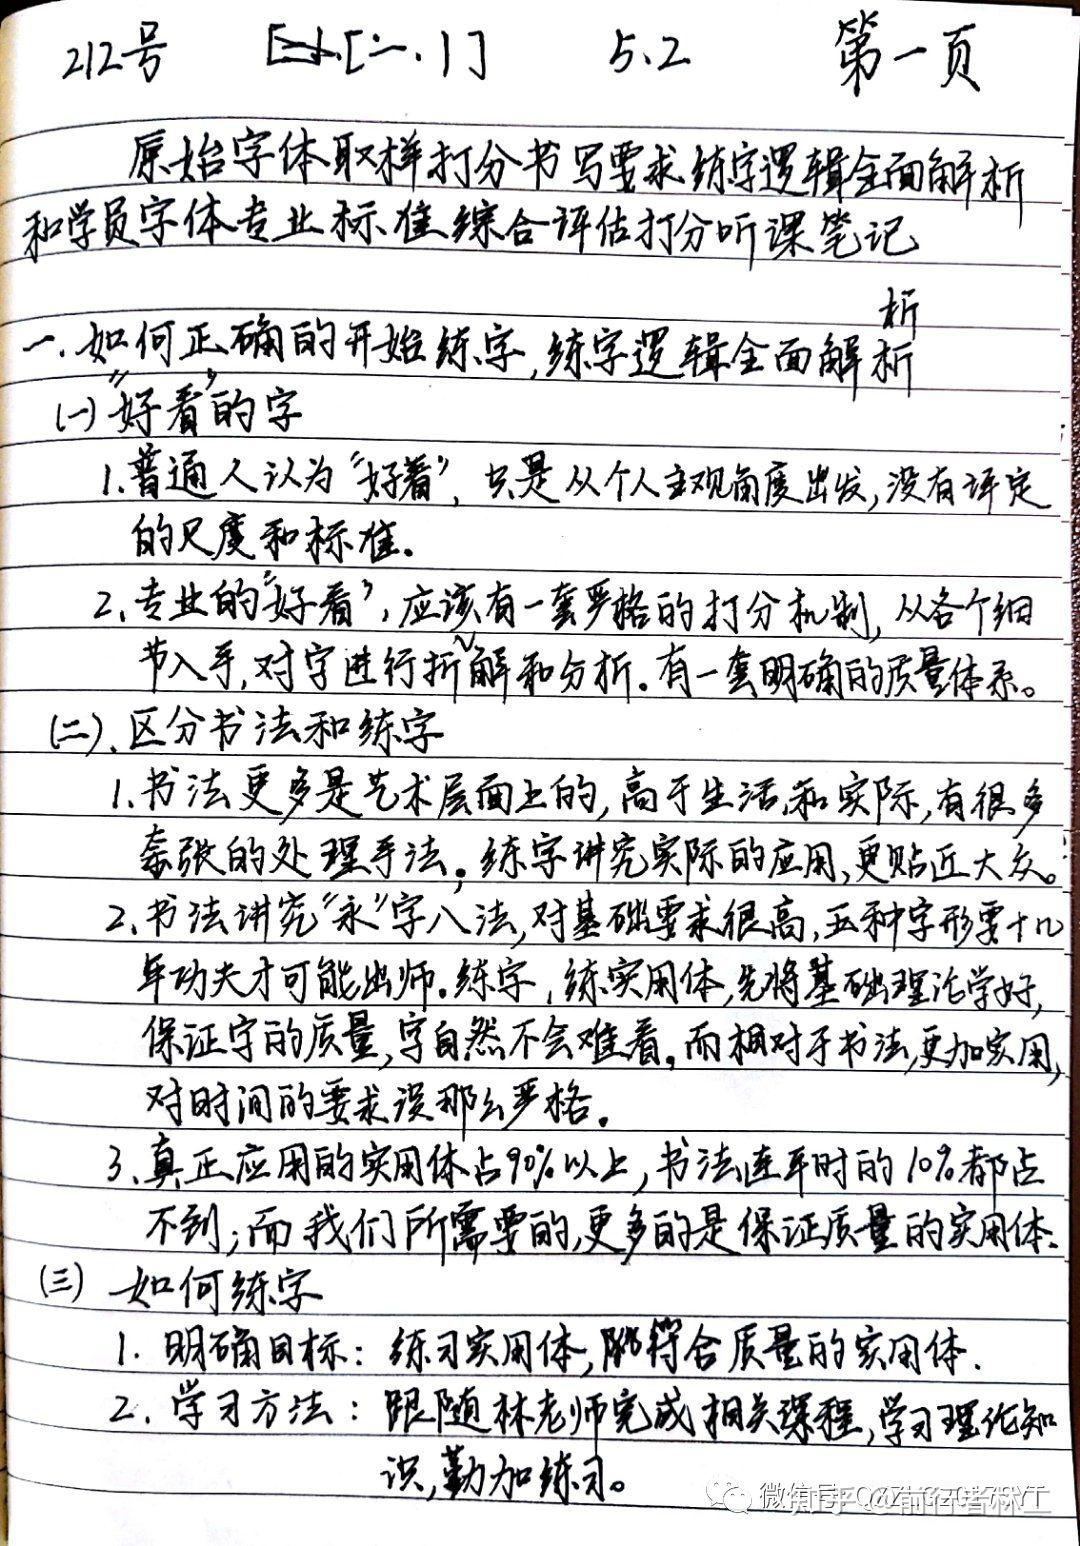 212号 [二.一.1] 5.2 第一页
原始字体取样打分书写要求练字逻辑全面解析
和学员字体专业标准综合评估打分听课笔记
析
一.如何正确的开始练字,练字逻辑全面解析
(一)“好看”的字
1.普通人认为“好看”,只是从个人主观角度出发,没有评定
的尺度和标准。
2.专业的“好看”,应该有一套严格的打分机制,从各个细
节入手,对字进行拆解和分析。有一套明确的质量体系。
(二)、区分书法和练字
1.书法更多是艺术层面上的,高于生活和实际,有很多
夸张的处理手法。练字讲究实际的应用,更贴近大众。
2.书法讲究“永”字八法,对基础要求很高,五种字形要十几
年功夫才可能出师。练字,练实用体,先将基础理论学好,
保证字的质量,字自然不会难看。而相对于书法,更加实用,
对时间的要求没那么严格。
3.真正应用的实用体占90%以上,书法连平时的10%都占
不到;而我们所需要的,更多的是保证质量的实用体.
(三) 如何练字
1.明确目标:练习实用体,符合质量的实用体.
2.学习方法:跟随林老师完成相关课程,学习理论知
识,勤加练习。